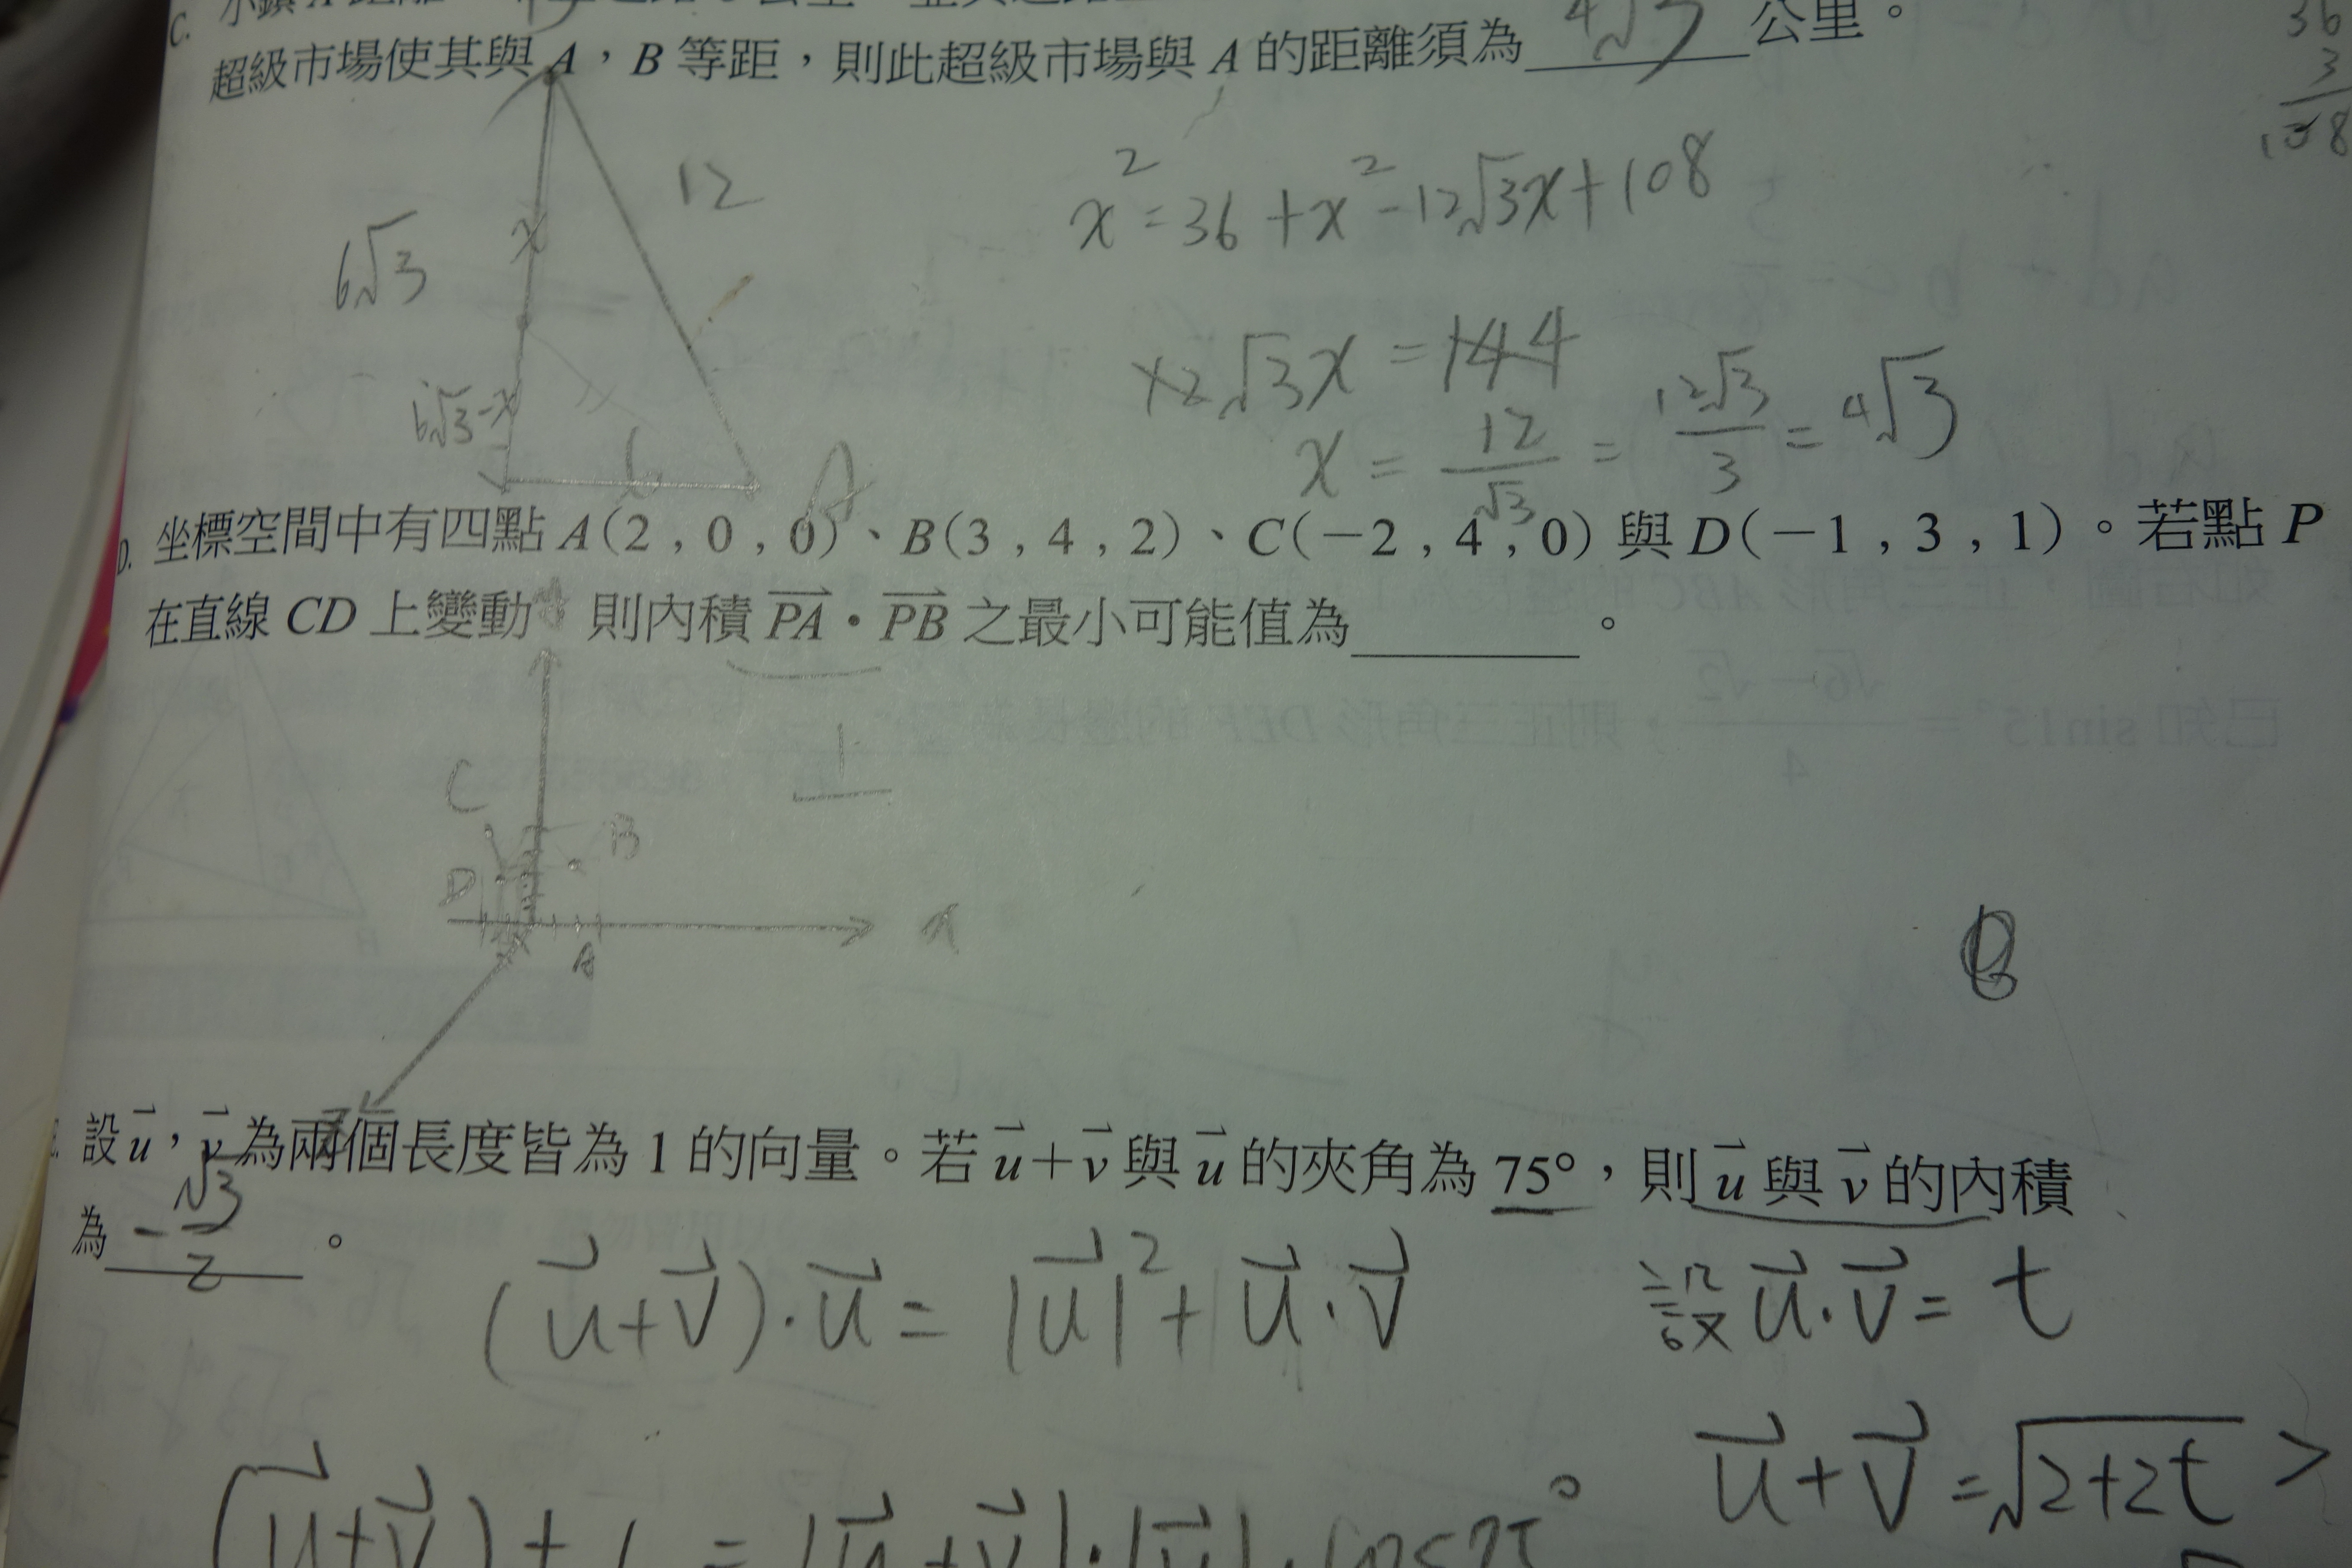 C. 小鎮 A 距離
超級市場使其與 A，B 等距，則此超級市場與 A 的距離須為 4√3 公里。
36
3
108
12
6√3
x
6√3-x
6
A
x²=36+x²-12√3x+108
12√3x=144
x=12/√3=12√3/3=4√3
D. 坐標空間中有四點 A(2，0，0)、B(3，4，2)、C(−2，4，0) 與 D(−1，3，1)。若點 P
在直線 CD 上變動 則內積 PA・PB 之最小可能值為＿＿＿。
C
D
B
A
x
設 u，v 為兩個長度皆為 1 的向量。若 u+v 與 u 的夾角為 75°，則 u 與 v 的內積
為 -√3/2 。
(u+v)·u=|u|²+u·v
設 u·v=t
u+v=√2+2t
(u+v)+1=|u+v|·|u|·cos75°